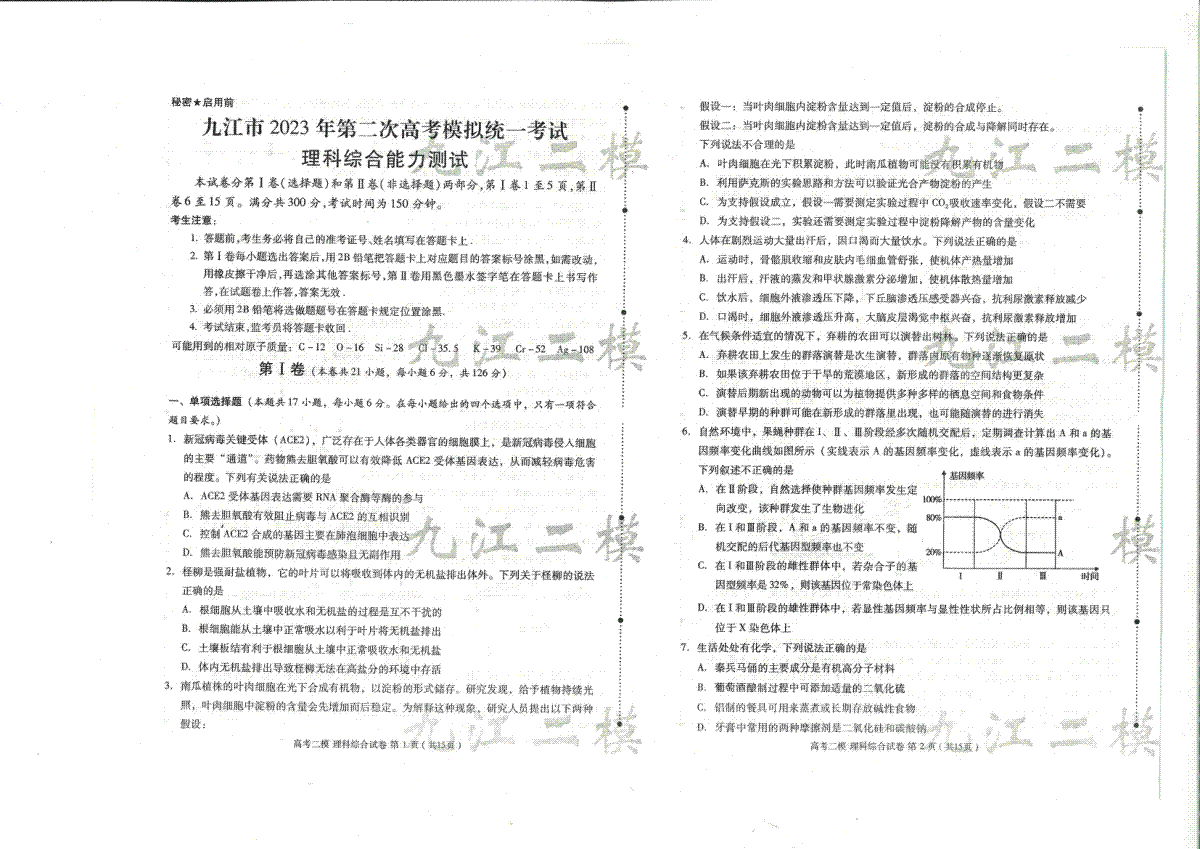 秘密★启用前
九江市 2023 年第二次高考模拟统一考试
理科综合能力测试
本试卷分第Ⅰ卷(选择题)和第Ⅱ卷(非选择题)两部分,第Ⅰ卷1至5页,第Ⅱ
卷6至15页。满分共300分,考试时间为150分钟。
考生注意:
1. 答题前,考生务必将自己的准考证号、姓名填写在答题卡上.
2. 第Ⅰ卷每小题选出答案后,用2B铅笔把答题卡上对应题目的答案标号涂黑,如需改动,
用橡皮擦干净后,再选涂其他答案标号,第Ⅱ卷用黑色墨水签字笔在答题卡上书写作
答,在试题卷上作答,答案无效.
3. 必须用2B铅笔将选做题题号在答题卡规定位置涂黑.
4. 考试结束,监考员将答题卡收回.
可能用到的相对原子质量:C－12 O－16 Si－28 Cl－35.5 K－39 Cr－52 Ag－108
第Ⅰ卷(本卷共21小题,每小题6分,共126分)
一、单项选择题(本题共17小题,每小题6分。在每小题给出的四个选项中,只有一项符合
题目要求。)
1. 新冠病毒关键受体(ACE2),广泛存在于人体各类器官的细胞膜上,是新冠病毒侵入细胞
的主要“通道”。药物熊去胆氧酸可以有效降低ACE2受体基因表达,从而减轻病毒危害
的程度。下列有关说法正确的是
A. ACE2受体基因表达需要RNA聚合酶等酶的参与
B. 熊去胆氧酸有效阻止病毒与ACE2的互相识别
C. 控制ACE2合成的基因主要在肺泡细胞中表达
D. 熊去胆氧酸能预防新冠病毒感染且无副作用
2. 柽柳是强耐盐植物,它的叶片可以将吸收到体内的无机盐排出体外。下列关于柽柳的说法
正确的是
A. 根细胞从土壤中吸收水和无机盐的过程是互不干扰的
B. 根细胞能从土壤中正常吸水以利于叶片将无机盐排出
C. 土壤板结有利于根细胞从土壤中正常吸收水和无机盐
D. 体内无机盐排出导致柽柳无法在高盐分的环境中存活
3. 南瓜植株的叶肉细胞在光下合成有机物,以淀粉的形式储存。研究发现,给予植物持续光
照,叶肉细胞中淀粉的含量会先增加而后稳定。为解释这种现象,研究人员提出以下两种
假设:
高考二模 理科综合试卷 第1页(共15页)
假设一:当叶肉细胞内淀粉含量达到一定值后,淀粉的合成停止。
假设二:当叶肉细胞内淀粉含量达到一定值后,淀粉的合成与降解同时存在。
下列说法不合理的是
A. 叶肉细胞在光下积累淀粉,此时南瓜植物可能没有积累有机物
B. 利用萨克斯的实验思路和方法可以验证光合产物淀粉的产生
C. 为支持假设成立,假设一需要测定实验过程中CO₂吸收速率变化,假设二不需要
D. 为支持假设二,实验还需要测定实验过程中淀粉降解产物的含量变化
4. 人体在剧烈运动大量出汗后,因口渴而大量饮水。下列说法正确的是
A. 运动时,骨骼肌收缩和皮肤内毛细血管舒张,使机体产热量增加
B. 出汗后,汗液的蒸发和甲状腺激素分泌增加,使机体散热量增加
C. 饮水后,细胞外液渗透压下降,下丘脑渗透压感受器兴奋,抗利尿激素释放减少
D. 口渴时,细胞外液渗透压升高,大脑皮层渴觉中枢兴奋,抗利尿激素释放增加
5. 在气候条件适宜的情况下,弃耕的农田可以演替出树林。下列说法正确的是
A. 弃耕农田上发生的群落演替是次生演替,群落内原有物种逐渐恢复原状
B. 如果该弃耕农田位于干旱的荒漠地区,新形成的群落的空间结构更复杂
C. 演替后期新出现的动物可以为植物提供多种多样的栖息空间和食物条件
D. 演替早期的种群可能在新形成的群落里出现,也可能随演替的进行消失
6. 自然环境中,果蝇种群在Ⅰ、Ⅱ、Ⅲ阶段经多次随机交配后,定期调查计算出A和a的基
因频率变化曲线如图所示(实线表示A的基因频率变化,虚线表示a的基因频率变化)。
下列叙述不正确的是
A. 在Ⅱ阶段,自然选择使种群基因频率发生定
向改变,该种群发生了生物进化
B. 在Ⅰ和Ⅲ阶段,A和a的基因频率不变,随
机交配的后代基因型频率也不变
C. 在Ⅰ和Ⅲ阶段的雌性群体中,若杂合子的基
因型频率是32%,则该基因位于常染色体上
D. 在Ⅰ和Ⅲ阶段的雄性群体中,若显性基因频率与显性性状所占比例相等,则该基因只
位于X染色体上
基因频率
100%
80%
20%
a
A
Ⅰ Ⅱ Ⅲ 时间
7. 生活处处有化学,下列说法正确的是
A. 秦兵马俑的主要成分是有机高分子材料
B. 葡萄酒酿制过程中可添加适量的二氧化硫
C. 铝制的餐具可用来蒸煮或长期存放碱性食物
D. 牙膏中常用的两种摩擦剂是二氧化硅和碳酸钠
高考二模 理科综合试卷 第2页(共15页)
九江二模
九江二模
九江二模
九江二模
九江二模
九江二模
模
九江二模